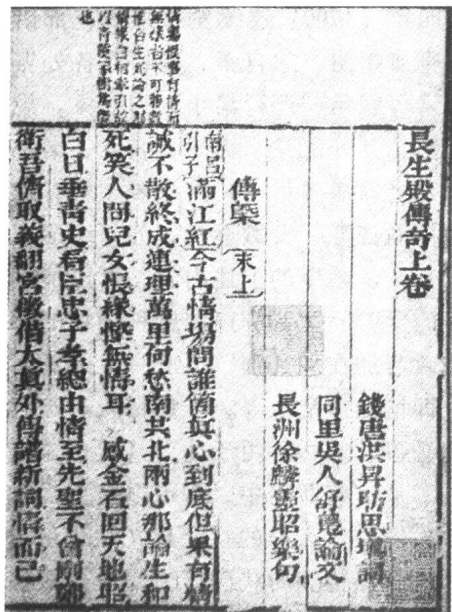 長生殿傳奇上卷
錢唐洪昇昉思填詞
同里吳人舒鳧論文
長洲徐麟靈昭樂句
傳槩 (末上)
南呂引子 滿江紅 今古情場問誰個真心到底但果有精
誠不散終成連理萬里何愁南共北兩心那論生和
死笑人間兒女悵緣慳無情耳 感金石回天地昭
白日垂青史看臣忠子孝總由情至先聖不曾刪鄭
衛吾儕取義翻宮徵借太真外傳譜新詞情而已
也